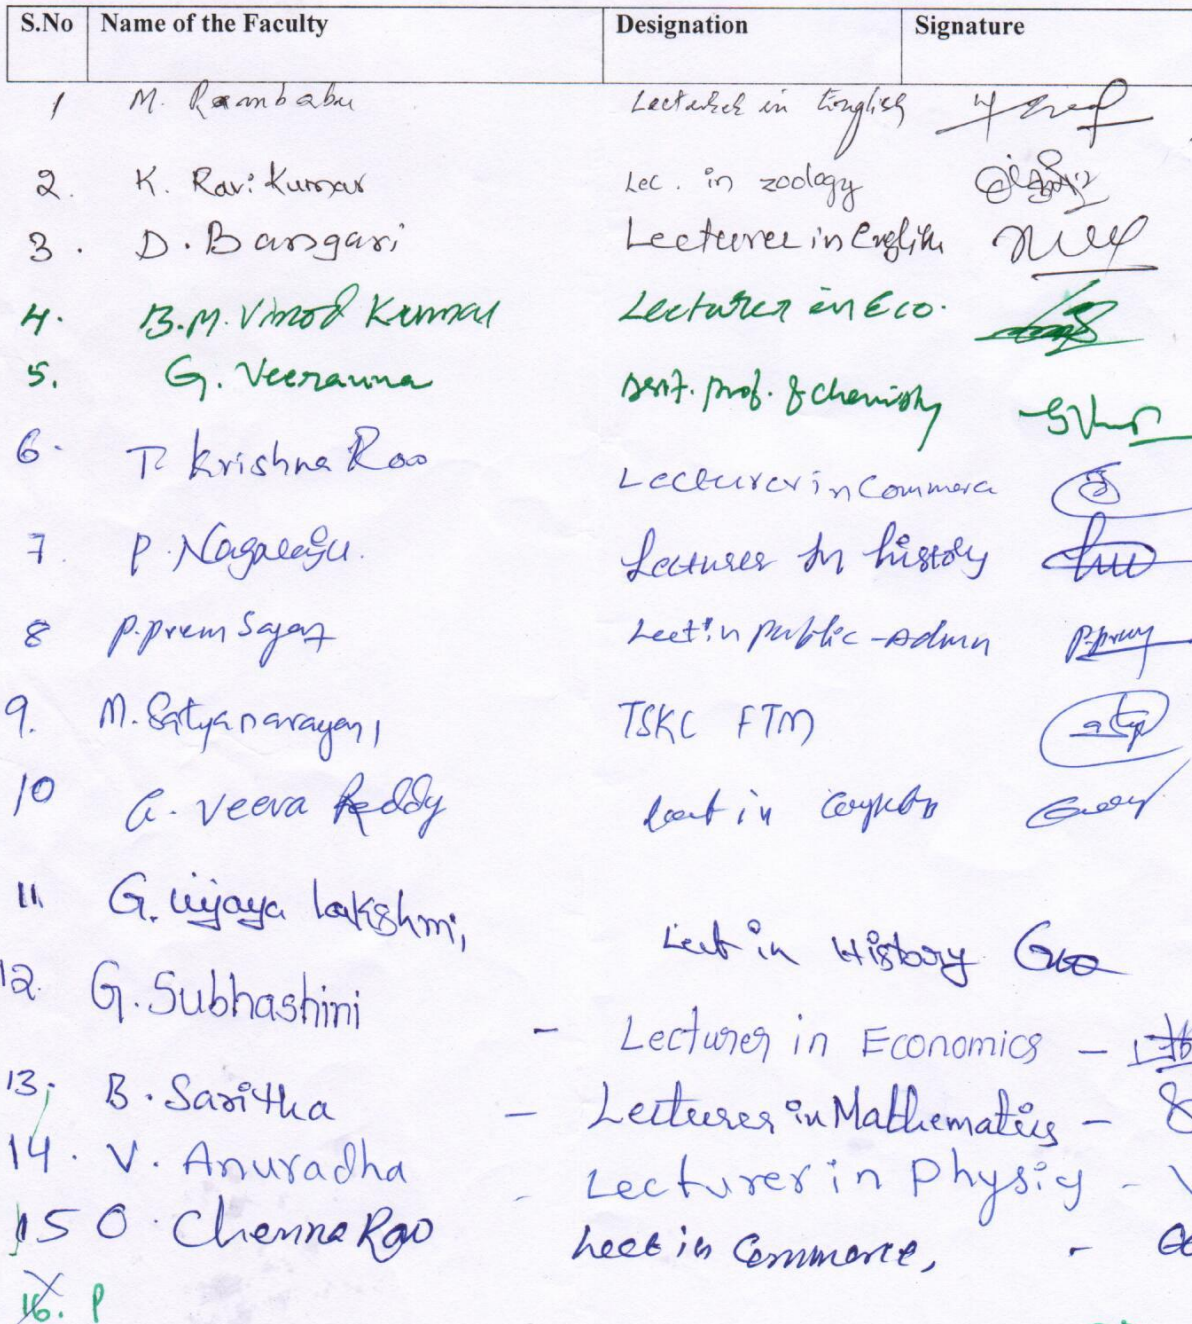 S.No Name of the Faculty Designation Signature
1 M. Rambabu Lecturer in English
2. K. Ravi Kumar Lec. in zoology
3. D. Bangari Lecturer in English
4. B.M. Vinod Kumar Lecturer in Eco.
5. G. Veeranna Asst. prof. of chemistry
6. T. Krishna Rao Lecturer in Commerce
7 P. Nagaraju. Lecturer In history
8 P. prem Sagar Lect in public-Admn
9. M. Satyanarayana TSKC FTM
10 G. Veera Reddy Lect in
11 G. vijaya lakshmi, Lect in History
12. G. Subhashini - Lecturer in Economics -
13. B. Saritha - Lecturer in Mathematics -
14. V. Anuradha - Lecturer in Physics -
15 O. Chenna Rao Lect in Commerce, -
16. P